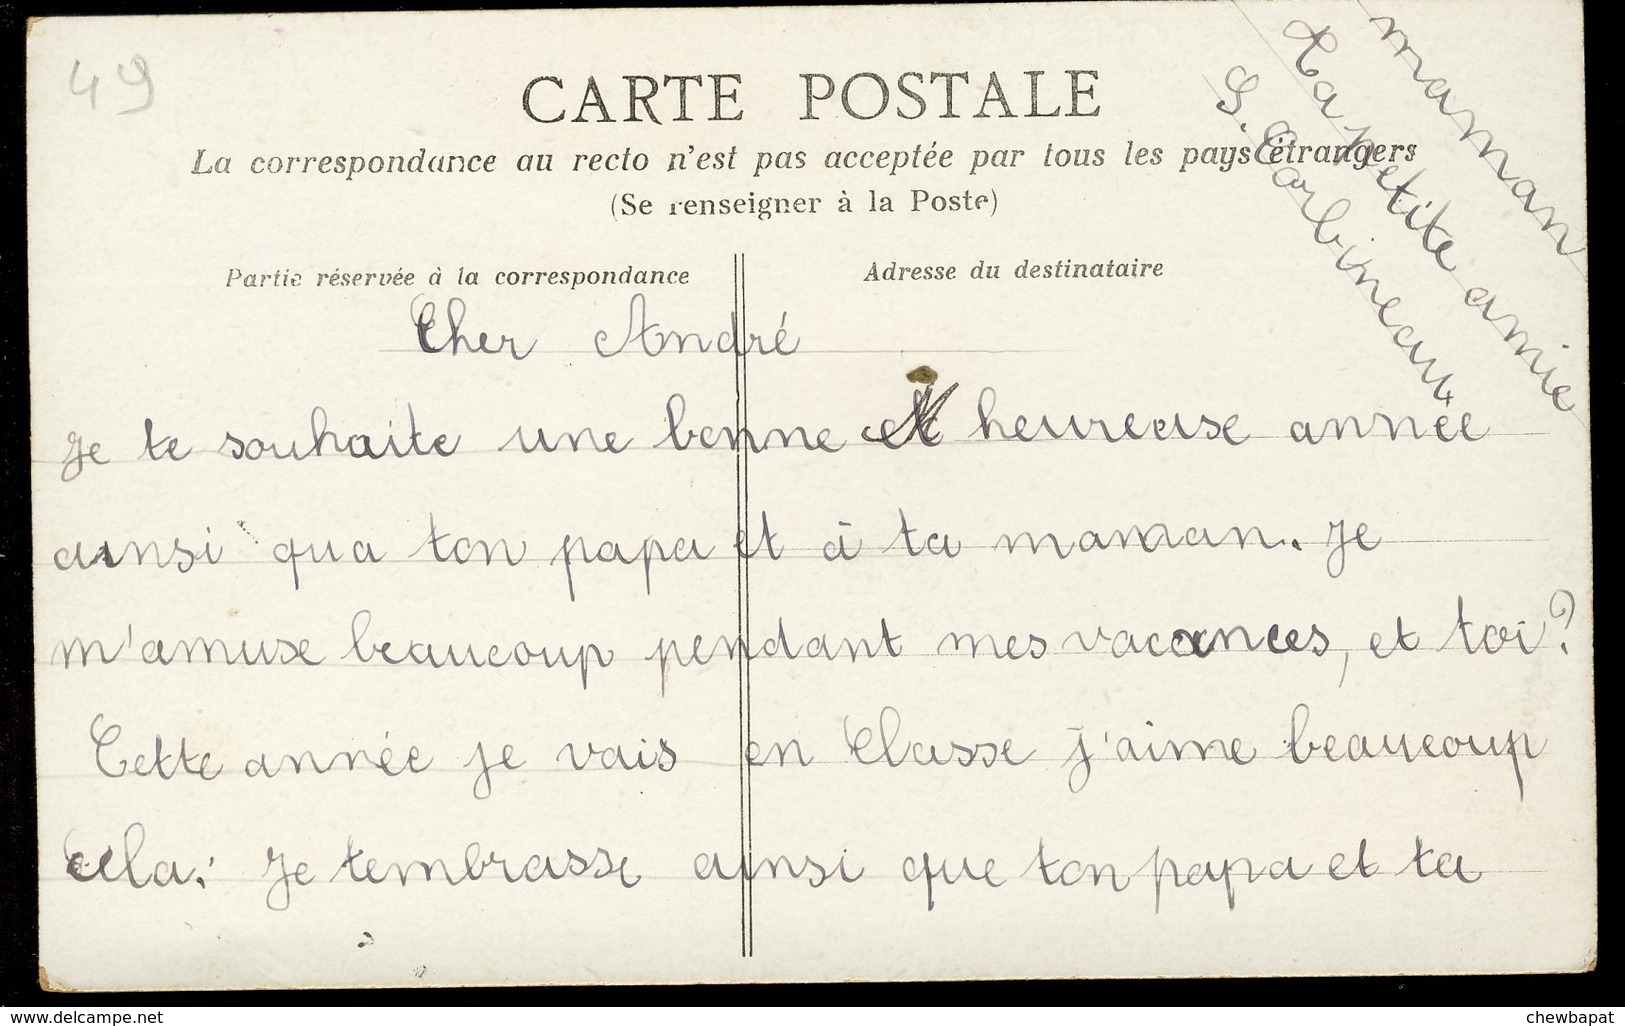 49
CARTE POSTALE
La correspondance au recto n'est pas acceptée par tous les pays étrangers
(Se renseigner à la Poste)
Partie réservée à la correspondance
Adresse du destinataire
Cher André
Je te souhaite une bonne et heureuse année
ainsi qua ton papa et à ta maman. Je
m'amuse beaucoup pendant mes vacances, et toi?
Cette année je vais en Classe j'aime beaucoup
cela. Je tembrasse ainsi que ton papa et ta
maman
Ta petite amie
S. Corbineau
www.delcampe.net
chewbapat